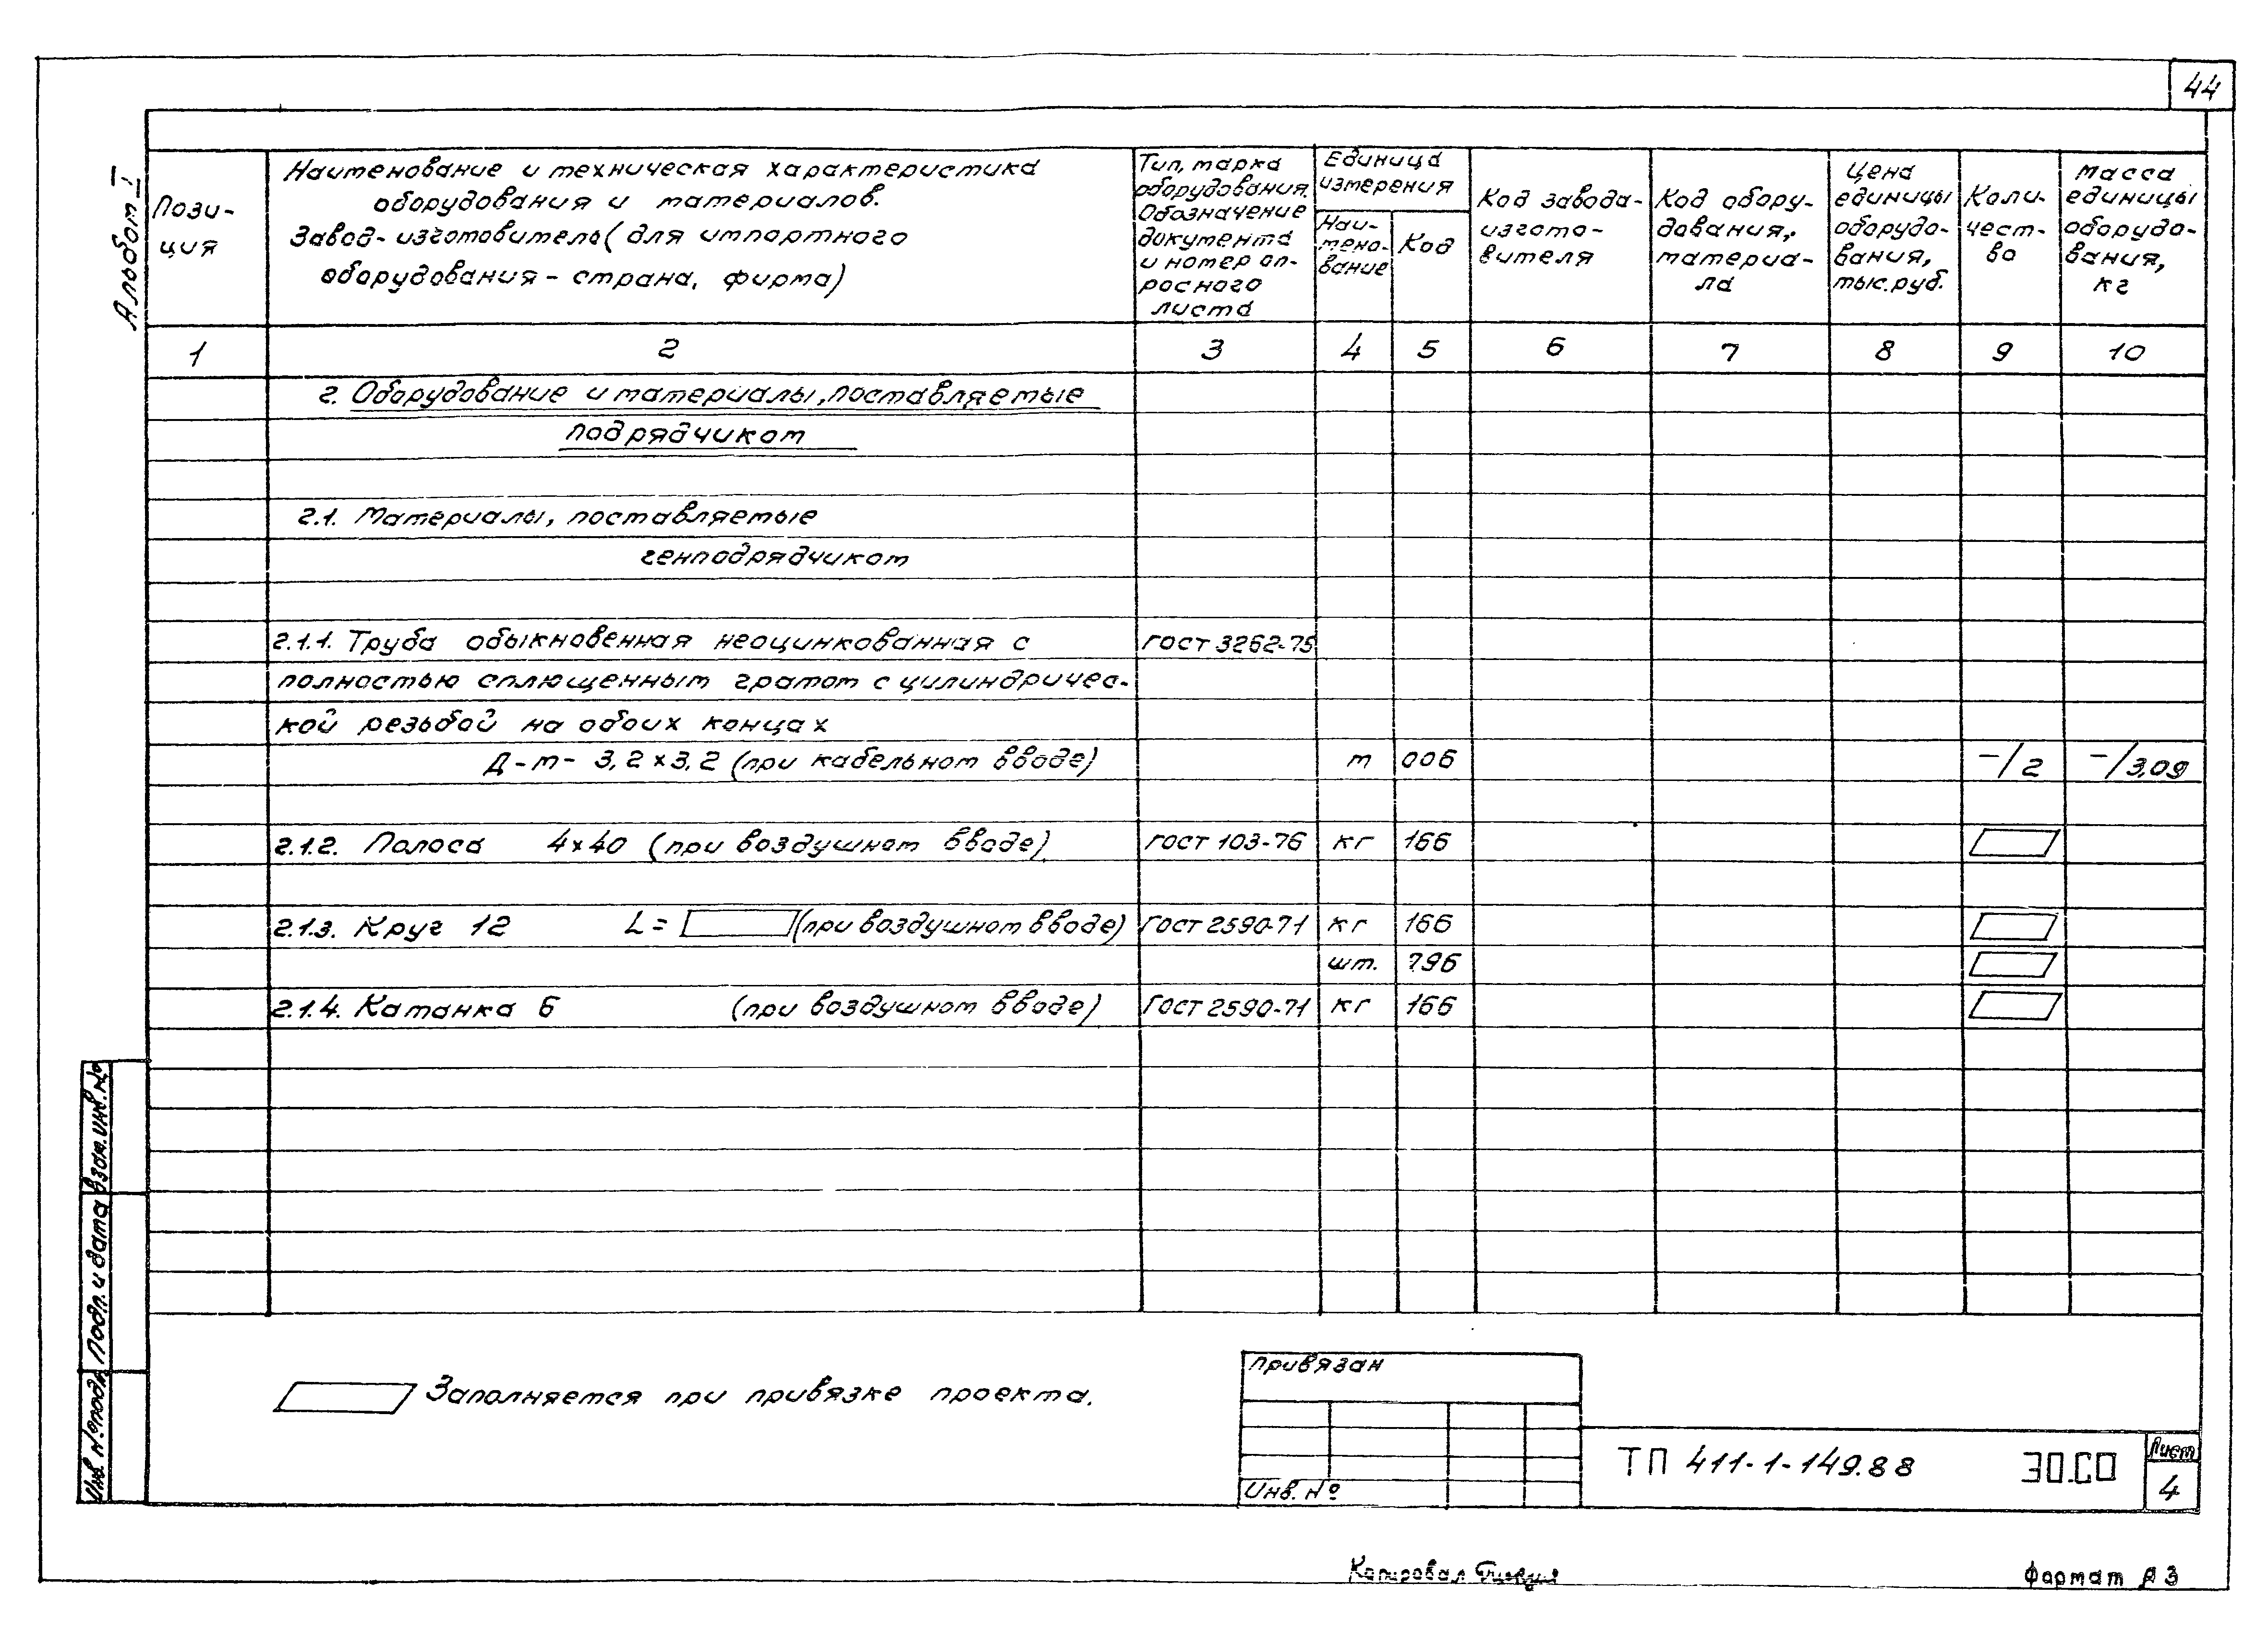 44
Альбом I
Пози-
ция
Наименование и техническая характеристика
оборудования и материалов.
Завод-изготовитель (для импортного
оборудования - страна, фирма)
Тип, марка
оборудования.
Обозначение
документа
и номер оп-
росного
листа
Единица
измерения
Наи-
мено-
вание
Код
Код завода-
изгото-
вителя
Код обору-
дования,
материа-
ла
Цена
единицы
оборудо-
вания,
тыс.руб.
Коли-
чест-
во
Масса
единицы
оборудо-
вания,
кг
1 2 3 4 5 6 7 8 9 10
2. Оборудование и материалы, поставляемые
подрядчиком
2.1. Материалы, поставляемые
генподрядчиком
2.1.1. Труба обыкновенная неоцинкованная с ГОСТ 3262-75
полностью сплющенным гратом с цилиндричес-
кой резьбой на обоих концах
Д-м- 3,2×3,2 (при кабельном вводе) м 006 -/2 -/3,09
2.1.2. Полоса 4×40 (при воздушном вводе) ГОСТ 103-76 кг 166
2.1.3. Круг 12 L= (при воздушном вводе) ГОСТ 2590-71 кг 166
шт. 796
2.1.4. Катанка 6 (при воздушном вводе) ГОСТ 2590-71 кг 166
Взам. инв. №
Подп. и дата
Инв. № подл
Заполняется при привязке проекта.
Привязан
Инв. №
ТП 411-1-149.88 ЭО.СО
Лист
4
Копировал
Формат А3